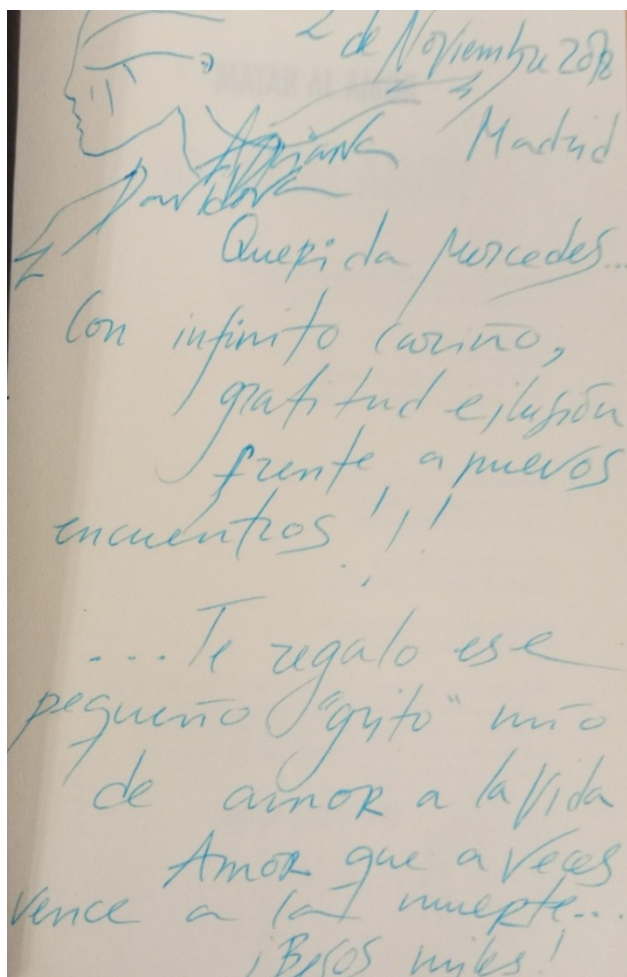 2 de Noviembre 2012
Adriana Madrid
Davidova
Querida Mercedes...
Con infinito cariño,
gratitud e ilusión
frente a nuevos
encuentros!!!
...Te regalo ese
pequeño "grito" mío
de amor a la Vida
Amor que a veces
vence a la muerte...
¡Besos miles!